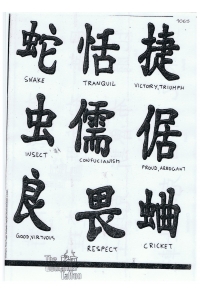 蛇 恬 捷
SNAKE TRANQUIL VICTORY, TRIUMPH
虫 儒 倨
INSECT CONFUCIANISM PROUD, ARROGANT
良 畏 蛐
GOOD, VIRTUOUS RESPECT CRICKET
Tattoo